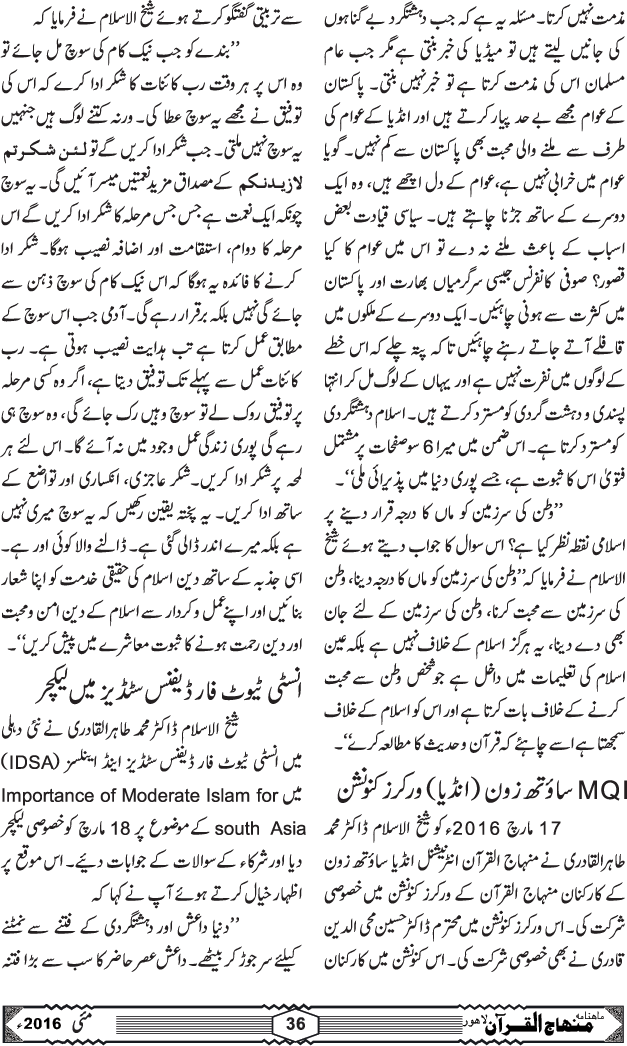 مذمت نہیں کرتا۔ مسئلہ یہ ہے کہ جب دہشتگرد بے گناہوں
کی جانیں لیتے ہیں تو میڈیا کی خبر بنتی ہے مگر جب عام
مسلمان اس کی مذمت کرتا ہے تو خبر نہیں بنتی۔ پاکستان
کے عوام مجھے بے حد پیار کرتے ہیں اور انڈیا کے عوام کی
طرف سے ملنے والی محبت بھی پاکستان سے کم نہیں۔ گویا
عوام میں خرابی نہیں ہے، عوام کے دل اچھے ہیں، وہ ایک
دوسرے کے ساتھ جڑنا چاہتے ہیں۔ سیاسی قیادت بعض
اسباب کے باعث ملنے نہ دے تو اس میں عوام کا کیا
قصور؟ صوفی کانفرنس جیسی سرگرمیاں بھارت اور پاکستان
میں کثرت سے ہونی چاہئیں۔ ایک دوسرے کے ملکوں میں
قافلے آتے جاتے رہنے چاہئیں تاکہ پتہ چلے کہ اس خطے
کے لوگوں میں نفرت نہیں ہے اور یہاں کے لوگ مل کر انتہا
پسندی و دہشت گردی کو مسترد کرتے ہیں۔ اسلام دہشتگردی
کو مسترد کرتا ہے۔ اس ضمن میں میرا 6 سو صفحات پر مشتمل
فتویٰ اس کا ثبوت ہے، جسے پوری دنیا میں پذیرائی ملی‘‘۔
’’وطن کی سرزمین کو ماں کا درجہ قرار دینے پر
اسلامی نقطہ نظر کیا ہے؟ اس سوال کا جواب دیتے ہوئے شیخ
الاسلام نے فرمایا کہ’’وطن کی سرزمین کو ماں کا درجہ دینا، وطن
کی سرزمین سے محبت کرنا، وطن کی سرزمین کے لئے جان
بھی دے دینا، یہ ہرگز اسلام کے خلاف نہیں ہے بلکہ عین
اسلام کی تعلیمات میں داخل ہے جو شخص وطن سے محبت
کرنے کے خلاف بات کرتا ہے اور اس کو اسلام کے خلاف
سمجھتا ہے اسے چاہئے کہ قرآن و حدیث کا مطالعہ کرے‘‘۔
MQI ساؤتھ زون (انڈیا) ورکرز کنونشن
17 مارچ 2016ء کو شیخ الاسلام ڈاکٹر محمد
طاہرالقادری نے منہاج القرآن انٹرنیشنل انڈیا ساؤتھ زون
کے کارکنان منہاج القرآن کے ورکرز کنونشن میں خصوصی
شرکت کی۔ اس ورکرز کنونشن میں محترم ڈاکٹر حسین محی الدین
قادری نے بھی خصوصی شرکت کی۔ اس کنونشن میں کارکنان
سے تربیتی گفتگو کرتے ہوئے شیخ الاسلام نے فرمایا کہ
’’بندے کو جب نیک کام کی سوچ مل جائے تو
وہ اس پر ہر وقت رب کائنات کا شکر ادا کرے کہ اس کی
توفیق نے مجھے یہ سوچ عطا کی۔ ورنہ کتنے لوگ ہیں جنہیں
یہ سوچ نہیں ملتی۔ جب شکر ادا کریں گے تو لئن شکرتم
لازیدنکم کے مصداق مزید نعمتیں میسر آئیں گی۔ یہ سوچ
چونکہ ایک نعمت ہے جس جس مرحلہ کا شکر ادا کریں گے اس
مرحلہ کا دوام، استقامت اور اضافہ نصیب ہوگا۔ شکر ادا
کرنے کا فائدہ یہ ہوگا کہ اس نیک کام کی سوچ ذہن سے
جائے گی نہیں بلکہ برقرار رہے گی۔ آدمی جب اس سوچ کے
مطابق عمل کرتا ہے تب ہدایت نصیب ہوتی ہے۔ رب
کائنات عمل سے پہلے تک توفیق دیتا ہے، اگر وہ کسی مرحلہ
پر توفیق روک لے تو سوچ وہیں رک جائے گی، وہ سوچ ہی
رہے گی پوری زندگی عمل وجود میں نہ آئے گا۔ اس لئے ہر
لمحہ پر شکر ادا کریں۔ شکر عاجزی، انکساری اور تواضع کے
ساتھ ادا کریں۔ یہ پختہ یقین رکھیں کہ یہ سوچ میری نہیں
ہے بلکہ میرے اندر ڈالی گئی ہے۔ ڈالنے والا کوئی اور ہے۔
اسی جذبہ کے ساتھ دین اسلام کی حقیقی خدمت کو اپنا شعار
بنائیں اور اپنے عمل و کردار سے اسلام کے دین امن و محبت
اور دین رحمت ہونے کا ثبوت معاشرے میں پیش کریں‘‘۔
انسٹی ٹیوٹ فار ڈیفنس سٹڈیز میں لیکچر
شیخ الاسلام ڈاکٹر محمد طاہرالقادری نے نئی دہلی
میں انسٹی ٹیوٹ فار ڈیفنس سٹڈیز اینڈ اینلسز (IDSA)
میں Importance of Moderate Islam for
south Asia کے موضوع پر 18 مارچ کو خصوصی لیکچر
دیا اور شرکاء کے سوالات کے جوابات دیئے۔ اس موقع پر
اظہار خیال کرتے ہوئے آپ نے کہا کہ
’’دنیا داعش اور دہشتگردی کے فتنے سے نمٹنے
کیلئے سر جوڑ کر بیٹھے۔ داعش عصر حاضر کا سب سے بڑا فتنہ
ماہنامہ منہاج القرآن لاہور
36
مئی 2016ء